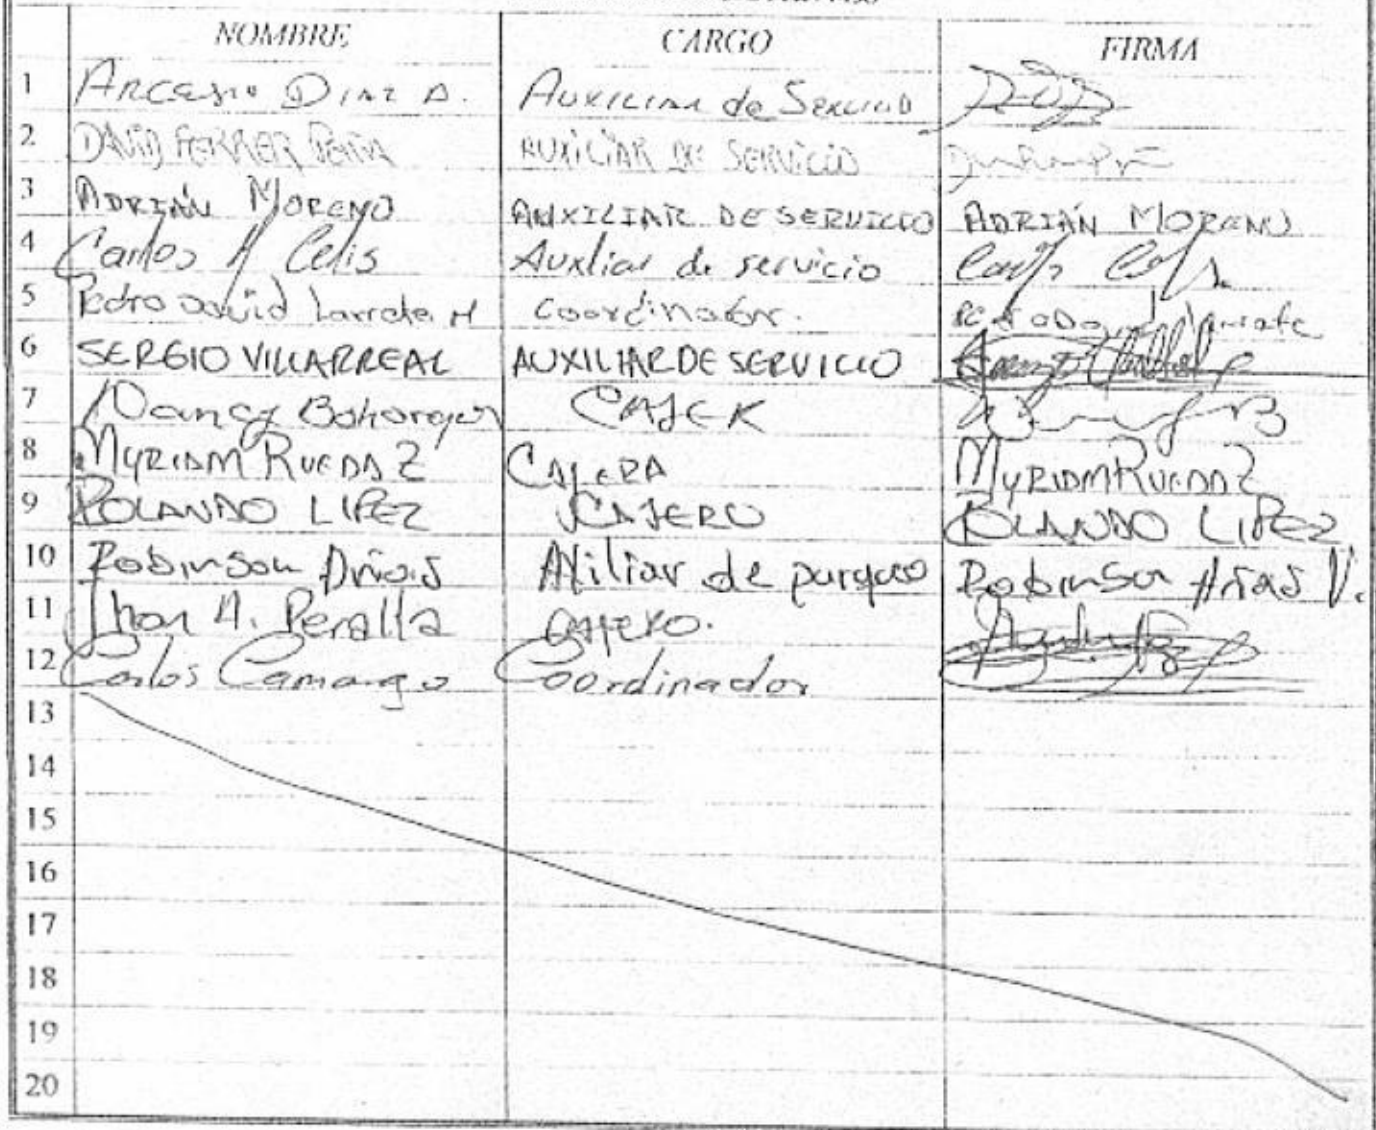 NOMBRE CARGO FIRMA
1 Arcesio Diaz D. Auxiliar de Servicio
2 DAVID FERRER PEÑA AUXILIAR DE SERVICIO
3 ADRIÁN MORENO AUXILIAR DE SERVICIO ADRIÁN MORENO
4 Carlos A Celis Auxliar de servicio
5 Pedro David Larrota H Coordinador.
6 SERGIO VILLARREAL AUXILIAR DE SERVICIO
7 Nancy Bohorquez CAJER
8 MYRIAM RUEDA Z CAJERA MYRIAM RUEDA Z
9 ROLANDO LIPEZ CAJERO ROLANDO LIPEZ
10 Robinson Ariñas de parqueo Robinson V.
11 Jhon A. Peralta cajero.
12 Carlos Camargo Coordinador
13
14
15
16
17
18
19
20